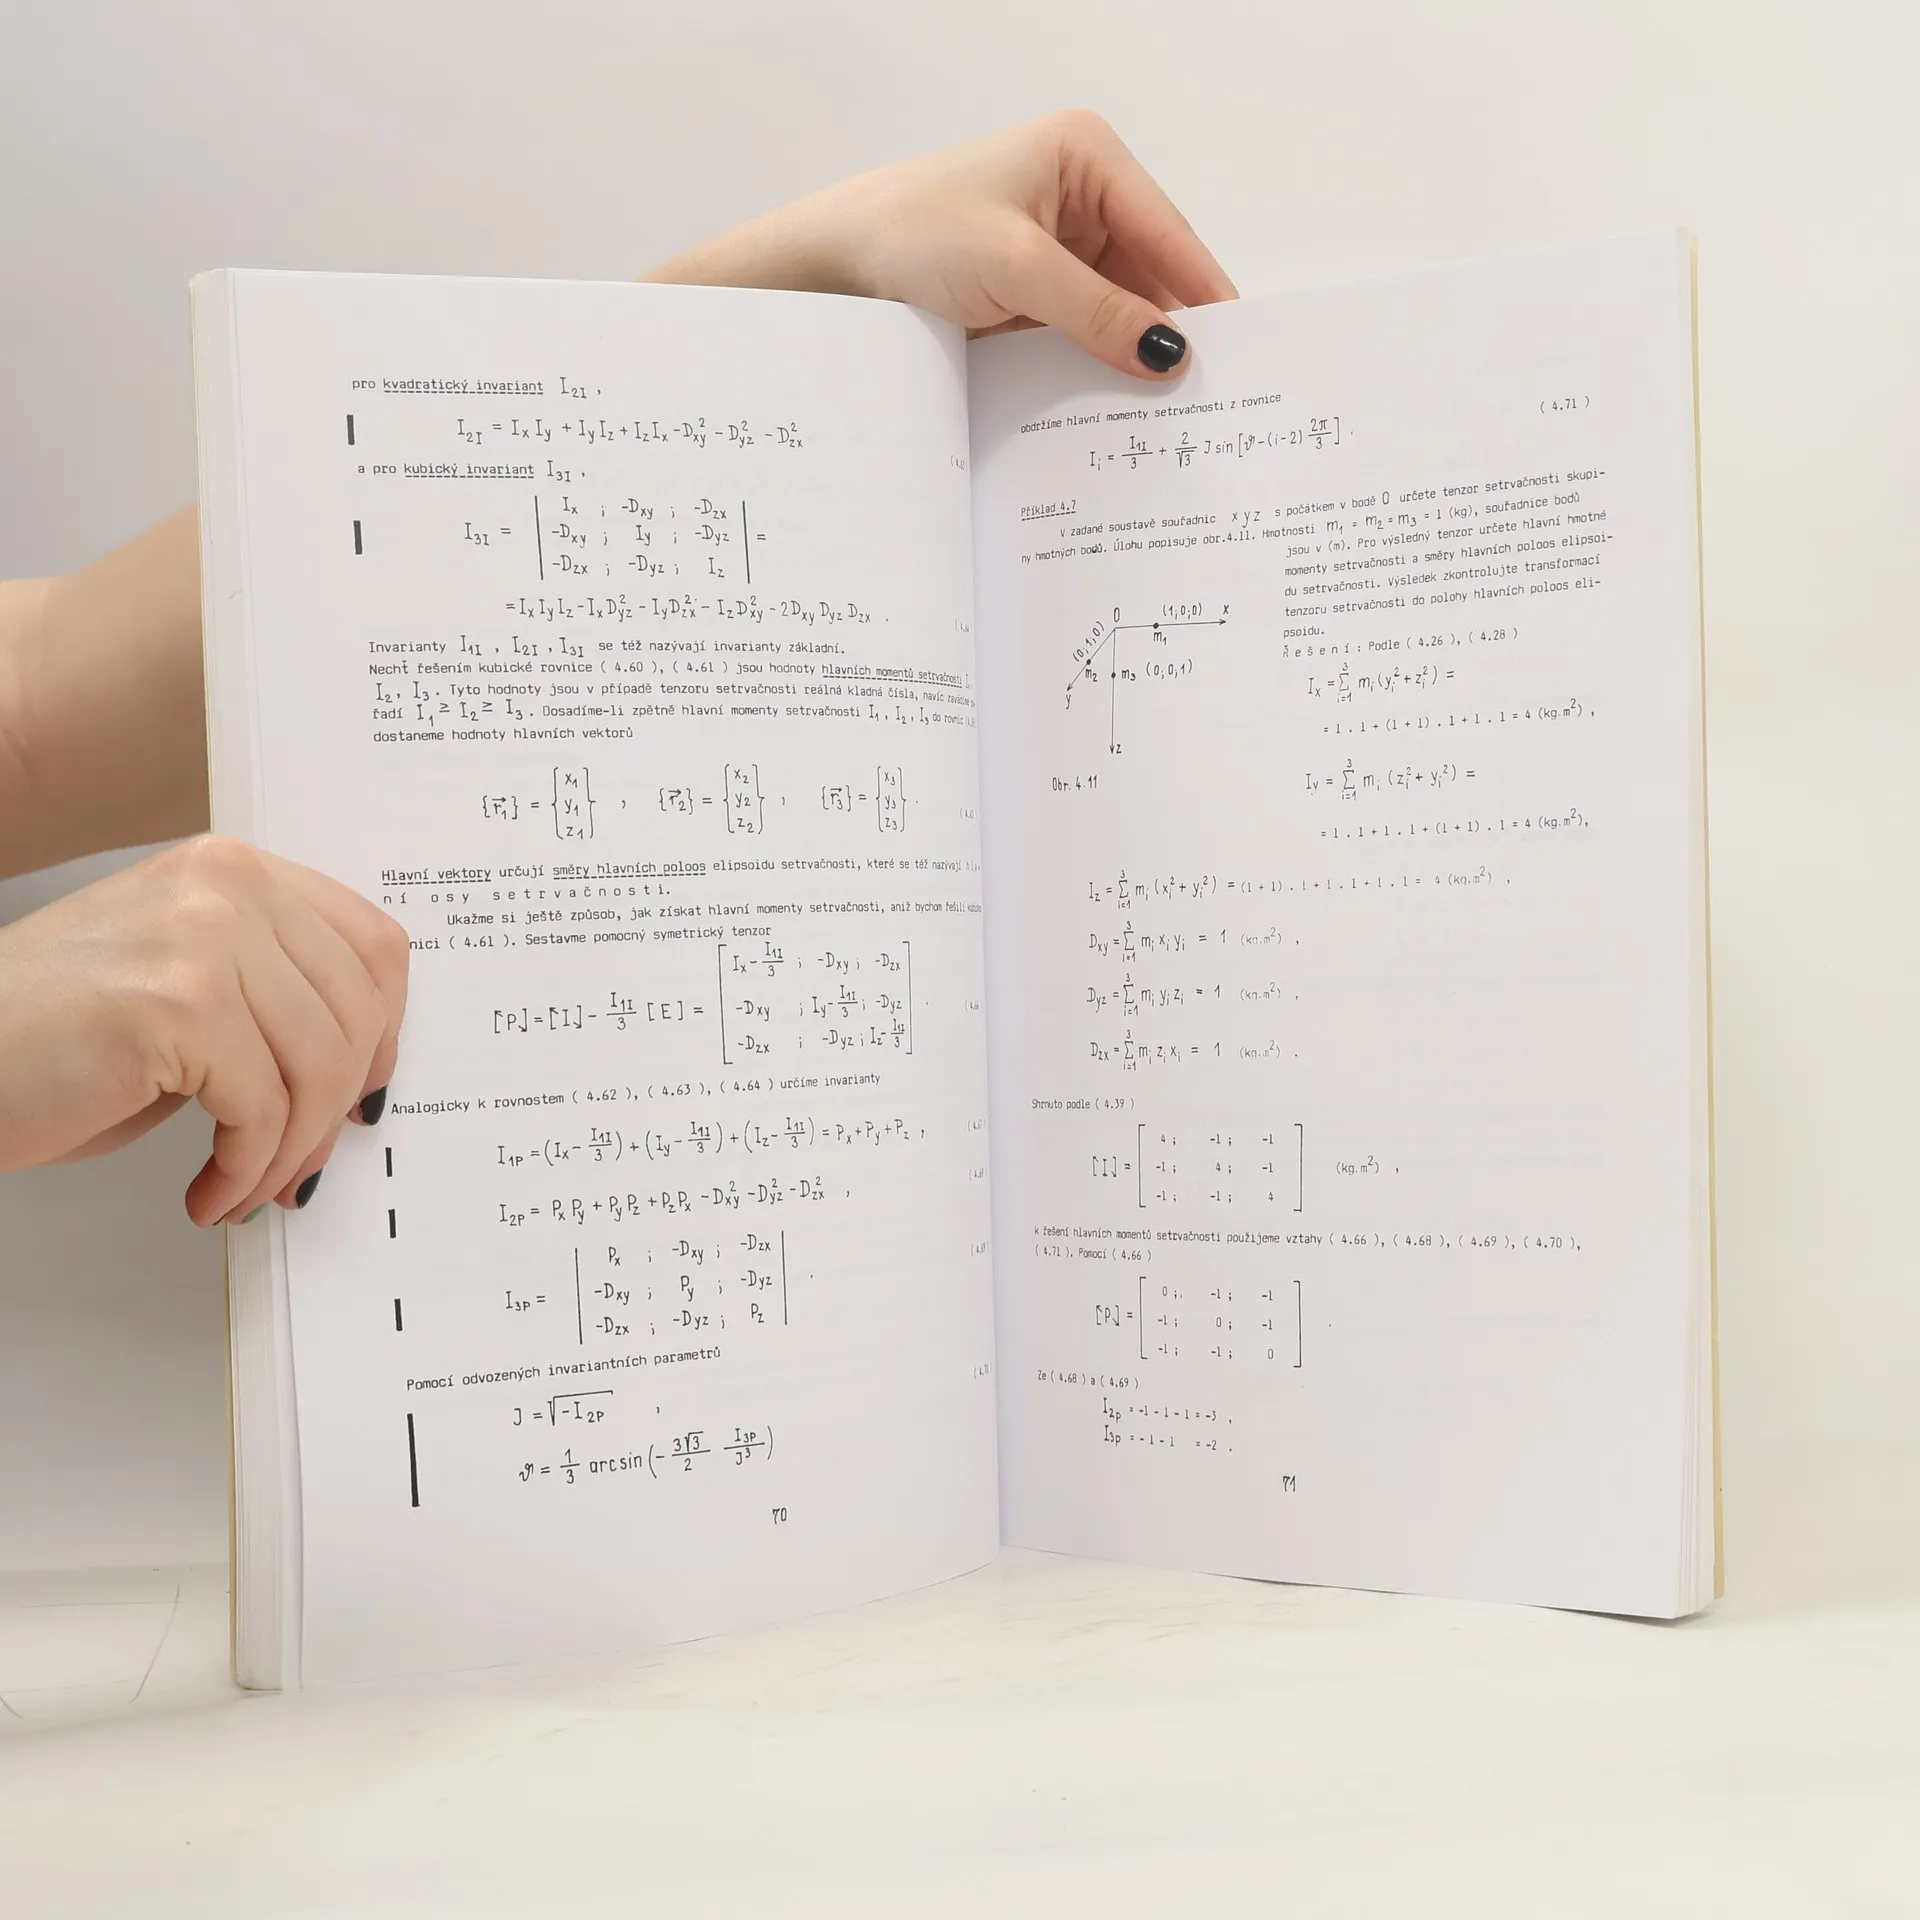 pro kvadratický invariant I₂I ,
I₂I = Ix Iy + Iy Iz + Iz Ix - Dxy² - Dyz² - Dzx²
a pro kubický invariant I₃I ,
I₃I = | Ix ; -Dxy ; -Dzx |
| -Dxy ; Iy ; -Dyz | =
| -Dzx ; -Dyz ; Iz |
= Ix Iy Iz - Ix Dyz² - Iy Dzx² - Iz Dxy² - 2 Dxy Dyz Dzx .
Invarianty I₁I , I₂I , I₃I se též nazývají invarianty základní.
Nechť řešením kubické rovnice ( 4.60 ), ( 4.61 ) jsou hodnoty hlavních momentů setrvačnosti
I₂, I₃. Tyto hodnoty jsou v případě tenzoru setrvačnosti reálná kladná čísla, navíc
řadí I₁ ≥ I₂ ≥ I₃. Dosadíme-li zpětně hlavní momenty setrvačnosti I₁, I₂, I₃ do rovnic
dostaneme hodnoty hlavních vektorů
{r⃗₁} = {x₁ y₁ z₁} , {r⃗₂} = {x₂ y₂ z₂} , {r⃗₃} = {x₃ y₃ z₃} .
Hlavní vektory určují směry hlavních poloos elipsoidu setrvačnosti, které se též nazývají
n í o s y s e t r v a č n o s t i.
Ukažme si ještě způsob, jak získat hlavní momenty setrvačnosti, aniž bychom řešili
nici ( 4.61 ). Sestavme pomocný symetrický tenzor
[P] = [I] - I₁I/3 [E] = [ Ix - I₁I/3 ; -Dxy ; -Dzx
-Dxy ; Iy - I₁I/3 ; -Dyz
-Dzx ; -Dyz ; Iz - I₁I/3 ] .
Analogicky k rovnostem ( 4.62 ), ( 4.63 ), ( 4.64 ) určíme invarianty
I₁P = (Ix - I₁I/3) + (Iy - I₁I/3) + (Iz - I₁I/3) = Px + Py + Pz ,
I₂P = Px Py + Py Pz + Pz Px - Dxy² - Dyz² - Dzx² ,
I₃P = | Px ; -Dxy ; -Dzx |
| -Dxy ; Py ; -Dyz | .
| -Dzx ; -Dyz ; Pz |
Pomocí odvozených invariantních parametrů
J = √-I₂P ,
ϑ = 1/3 arcsin (- 3√3/2 I₃P/J³)
70
obdržíme hlavní momenty setrvačnosti z rovnice ( 4.71 )
Ii = I₁I/3 + 2/√3 J sin [ϑ - (i-2) 2π/3] .
Příklad 4.7
V zadané soustavě souřadnic x y z s počátkem v bodě O určete tenzor setrvačnosti skupi-
ny hmotných bodů. Úlohu popisuje obr.4.11. Hmotnosti m₁ = m₂ = m₃ = 1 (kg), souřadnice bodů
jsou v (m). Pro výsledný tenzor určete hlavní hmotné
momenty setrvačnosti a směry hlavních poloos elipsoi-
du setrvačnosti. Výsledek zkontrolujte transformací
tenzoru setrvačnosti do polohy hlavních poloos eli-
psoidu.
Ř e š e n í : Podle ( 4.26 ), ( 4.28 )
O (1;0;0) x
m₁
(0;1;0)
m₂
m₃ (0;0;1)
y
z
Obr. 4.11
Ix = Σ mi (yi² + zi²) =
= 1 . 1 + (1 + 1) . 1 + 1 . 1 = 4 (kg.m²) ,
Iy = Σ mi (zi² + yi²) =
= 1 . 1 + 1 . 1 + (1 + 1) . 1 = 4 (kg.m²),
Iz = Σ mi (xi² + yi²) = (1 + 1) . 1 + 1 . 1 + 1 . 1 = 4 (kg.m²) ,
Dxy = Σ mi xi yi = 1 (kg.m²) ,
Dyz = Σ mi yi zi = 1 (kg.m²) ,
Dzx = Σ mi zi xi = 1 (kg.m²) .
Shrnuto podle ( 4.39 )
[I] = [ 4 ; -1 ; -1
-1 ; 4 ; -1
-1 ; -1 ; 4 ] (kg.m²) ,
k řešení hlavních momentů setrvačnosti použijeme vztahy ( 4.66 ), ( 4.68 ), ( 4.69 ), ( 4.70 ),
( 4.71 ). Pomocí ( 4.66 )
[P] = [ 0 ; -1 ; -1
-1 ; 0 ; -1
-1 ; -1 ; 0 ] .
Ze ( 4.68 ) a ( 4.69 )
I₂p = -1 - 1 - 1 = -3 ,
I₃p = - 1 - 1 = -2 .
71